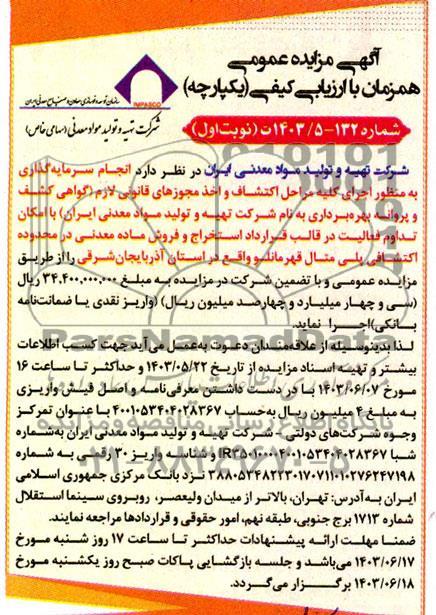 آگهی مزایده عمومی
همزمان با ارزیابی کیفی (یکپارچه)
سازمان توسعه و نوسازی معادن و صنایع معدنی ایران
IMPASCO
شرکت تهیه و تولید مواد معدنی (سهامی خاص)
شماره ۱۳۲-۱۴۰۳/۵ت (نوبت اول)
شرکت تهیه و تولید مواد معدنی ایران در نظر دارد انجام سرمایه‌گذاری
به منظور اجرای کلیه مراحل اکتشاف و اخذ مجوزهای قانونی لازم (گواهی کشف
و پروانه بهره‌برداری به نام شرکت تهیه و تولید مواد معدنی ایران) با امکان
تداوم فعالیت در قالب قرارداد استخراج و فروش ماده معدنی در محدوده
اکتشافی پلی متال قهرمانلو واقع در استان آذربایجان‌شرقی را از طریق
مزایده عمومی و با تضمین شرکت در مزایده به مبلغ ۳۴,۴۰۰,۰۰۰,۰۰۰ ریال
(سی و چهار میلیارد و چهارصد میلیون ریال) (واریز نقدی یا ضمانت‌نامه
بانکی) اجرا نماید.
لذا بدینوسیله از علاقه‌مندان دعوت به‌عمل می‌آید جهت کسب اطلاعات
بیشتر و تهیه اسناد مزایده از تاریخ ۱۴۰۳/۰۵/۲۲ و حداکثر تا ساعت ۱۶
مورخ ۱۴۰۳/۰۶/۰۷ با در دست داشتن معرفی‌نامه و اصل فیش واریزی
به مبلغ ۴ میلیون ریال به‌حساب ۴۰۰۱۰۵۳۴۰۴۰۲۸۳۶۷ با عنوان تمرکز
وجوه شرکت‌های دولتی - شرکت تهیه و تولید مواد معدنی ایران به‌شماره
شبا و شناسه واریز ۳۰ رقمی به
نزد بانک مرکزی جمهوری اسلامی
ایران به‌آدرس: تهران، بالاتر از میدان ولیعصر، روبروی سینما استقلال
شماره ۱۷۱۳ برج جنوبی، طبقه نهم، امور حقوقی و قراردادها مراجعه نمایند.
ضمنا مهلت ارائه پیشنهادات حداکثر تا ساعت ۱۷ روز شنبه مورخ
۱۴۰۳/۰۶/۱۷ می‌باشد و جلسه بازگشایی پاکات صبح روز یکشنبه مورخ
۱۴۰۳/۰۶/۱۸ برگزار می‌گردد.